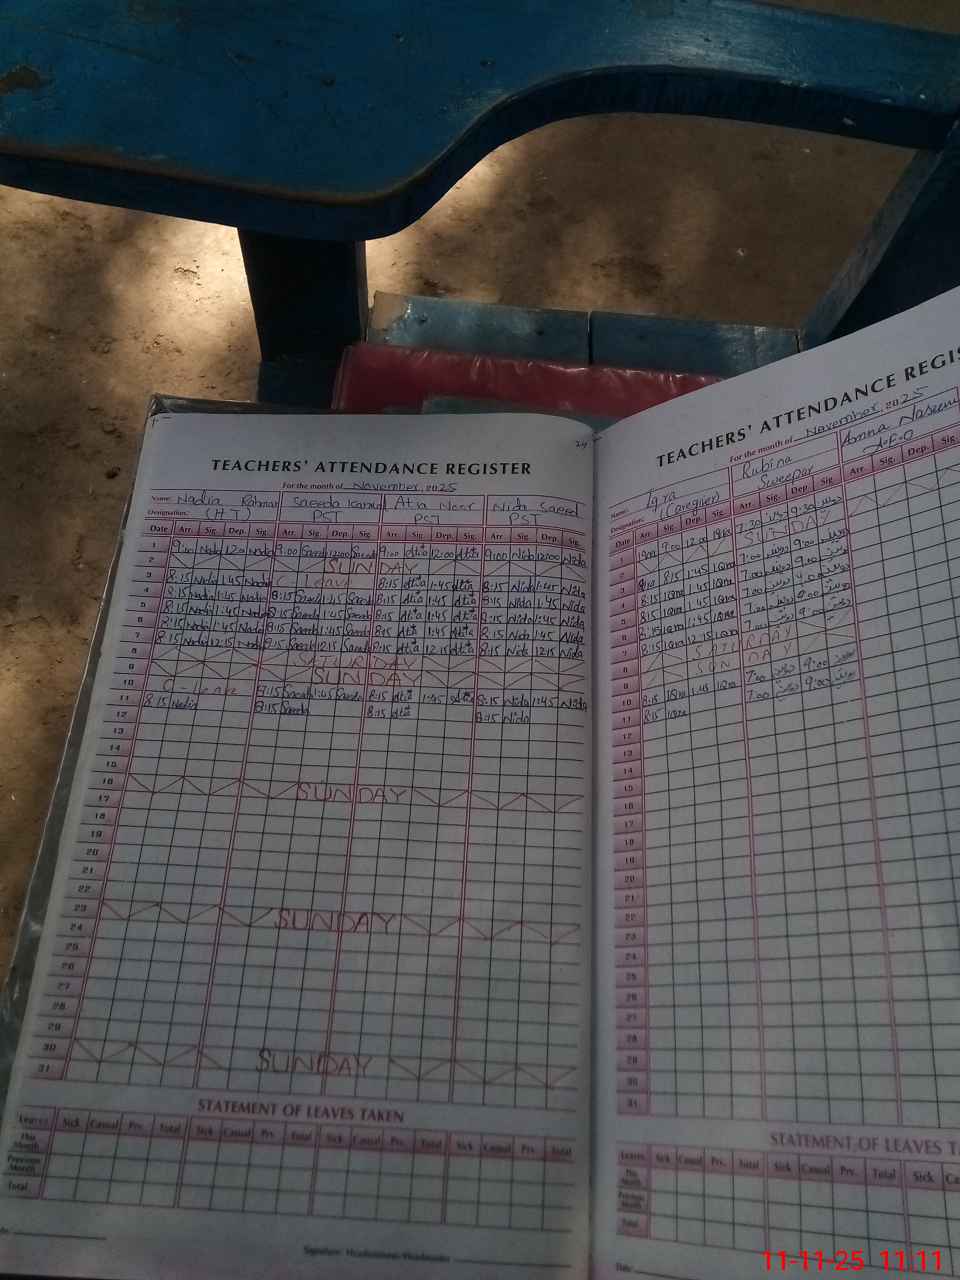 24
TEACHERS' ATTENDANCE REGISTER
For the month of November, 2025
Name: Nadia Rahman Saeeda Kanwal Atia Noor Nida Saeed
Designation: (H T) PST PST PST
Date Arr. Sig. Dep. Sig. Arr. Sig. Dep. Sig. Arr. Sig. Dep. Sig. Arr. Sig. Dep. Sig.
1 9:00 Nadia 12:00 Nadia 9:00 Saeeda 12:00 Saeeda 9:00 Atia 12:00 Atia 9:00 Nida 12:00 Nida
2 SUNDAY
3 8:15 Nadia 1:45 Nadia C Leave 8:15 Atia 1:45 Atia 8:15 Nida 1:45 Nida
4 8:15 Nadia 1:45 Nadia 8:15 Saeeda 1:45 Saeeda 8:15 Atia 1:45 Atia 8:15 Nida 1:45 Nida
5 8:15 Nadia 1:45 Nadia 8:15 Saeeda 1:45 Saeeda 8:15 Atia 1:45 Atia 8:15 Nida 1:45 Nida
6 8:15 Nadia 1:45 Nadia 8:15 Saeeda 1:45 Saeeda 8:15 Atia 1:45 Atia 8:15 Nida 1:45 Nida
7 8:15 Nadia 12:15 Nadia 8:15 Saeeda 12:15 Saeeda 8:15 Atia 12:15 Atia 8:15 Nida 12:15 Nida
8 SATURDAY
9 SUNDAY
10 C - Leave 8:15 Saeeda 1:45 Saeeda 8:15 Atia 1:45 Atia 8:15 Nida 1:45 Nida
11 8:15 Nadia 8:15 Saeeda 8:15 Atia 8:15 Nida
12
13
14
15
16 SUNDAY
17
18
19
20
21
22
23 SUNDAY
24
25
26
27
28
29
30 SUNDAY
31
STATEMENT OF LEAVES TAKEN
Leaves Sick Casual Prv. Total Sick Casual Prv. Total Sick Casual Prv. Total Sick Casual Prv. Total
This Month
Previous Month
Total
Signature Headmistress/Headmaster
TEACHERS' ATTENDANCE REGIS
For the month of November, 2025
Name: Iqra Rubina Amna Naseem
Designation: (Caregiver) Sweeper A.E.O
Date Arr. Sig. Dep. Sig. Arr. Sig. Dep. Sig. Arr. Sig. Dep. Sig.
1 9:00 12:00 7:30 9:30
2 SUNDAY
3 8:15 1:45 Iqra 7:00 9:00
4 8:15 Iqra 1:45 Iqra 7:00 9:00
5 8:15 Iqra 1:45 Iqra 7:00 9:00
6 8:15 Iqra 1:45 Iqra 7:00 9:00
7 8:15 Iqra 12:15 Iqra 7:00 9:00
8 SATURDAY
9 SUNDAY
10 8:15 Iqra 1:45 Iqra 7:00 9:00
11 8:15 Iqra 7:00 9:00
12
13
14
15
16
17
18
19
20
21
22
23
24
25
26
27
28
29
30
31
STATEMENT OF LEAVES TA
Leaves Sick Casual Prv. Total Sick Casual Prv. Total Sick Ca
This Month
Previous Month
Total
Date
11-11-25 11:11